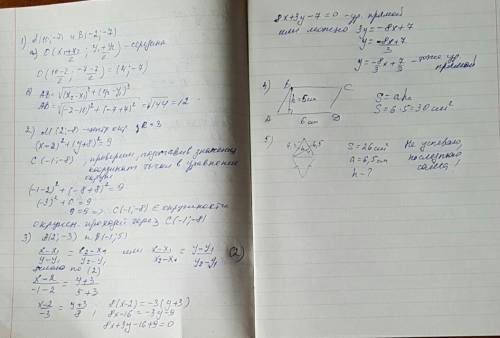 1) A(10;-7) и B(-2;-7)
а) O((x₁+x₂)/2; (y₁+y₂)/2) - середина
O((10-2)/2; (-7-7)/2) = (4;-7)
AB = √((x₂-x₁)²+(y₂-y₁)²)
AB = √((-2-10)²+(-7+7)²) = √144 = 12
2) M(2;-8) R=3
(x-2)²+(y+8)²=9
C(-1;-8), проверим, подставив значения
координат точки в уравнение
окруж.
(-1-2)²+(-8+8)²=9
(-3)²+0²=9
9=9 => C(-1;-8) ∈ окружности
окружн. проходит через C(-1;-8)
3) A(2;-3) и B(-1;5)
или (x-x₁)/(x₂-x₁) = (y-y₁)/(y₂-y₁) (2)
по (2)
(x-2)/(-1-2) = (y+3)/(5+3)
(x-2)/(-3) = (y+3)/8; 8(x-2)=-3(y+3)
8x-16=-3y-9
8x+3y-16+9=0
8x+3y-7=0 - ур. прямой
или можно 3y=-8x+7
y=(-8x+7)/3
y=-8/3x+7/3 - тоже ур.
прямой
4) B C
h=5см
A 6см D
S=ah
S=6·5=30 см²
5) 6,5
S=26см²
a=6,5см
h-?
Не успеваю,
сама!